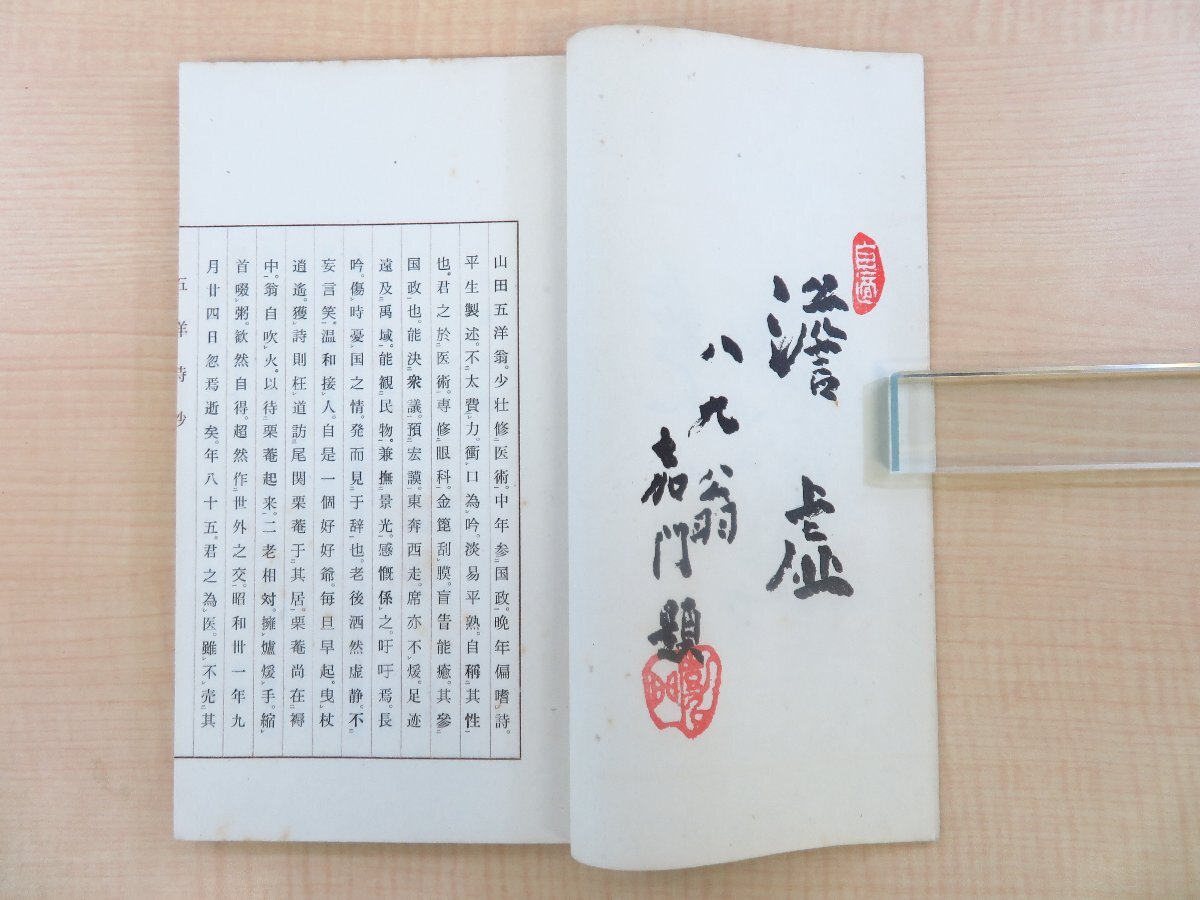 澹虚
八九翁
嘉門題
山田五洋翁。少壮修医術。中年参国政。晩年偏嗜詩。
平生製述。不太費力。衝口為吟。淡易平熟。自稱其性
也。君之於医術。専修眼科。金篦刮膜。盲眚能癒。其參
国政也。能決衆議。預宏謨。東奔西走。席亦不煖。足迹
遠及禹域。能観民物。兼撫景光。感慨係之。吁吁焉。長
吟。傷時憂国之情。発而見于辞也。老後洒然虚静。不
妄言笑。温和接人。自是一個好好爺。毎旦早起。曳杖
逍遙。獲詩則枉道訪尾関栗菴于其居。栗菴尚在褥
中。翁自吹火。以待栗菴起来。二老相対。擁爐煖手。縮
首啜粥。歓然自得。超然作世外之交。昭和卅一年九
月廿四日忽焉逝矣。年八十五。君之為医。雖不売其
五洋詩鈔